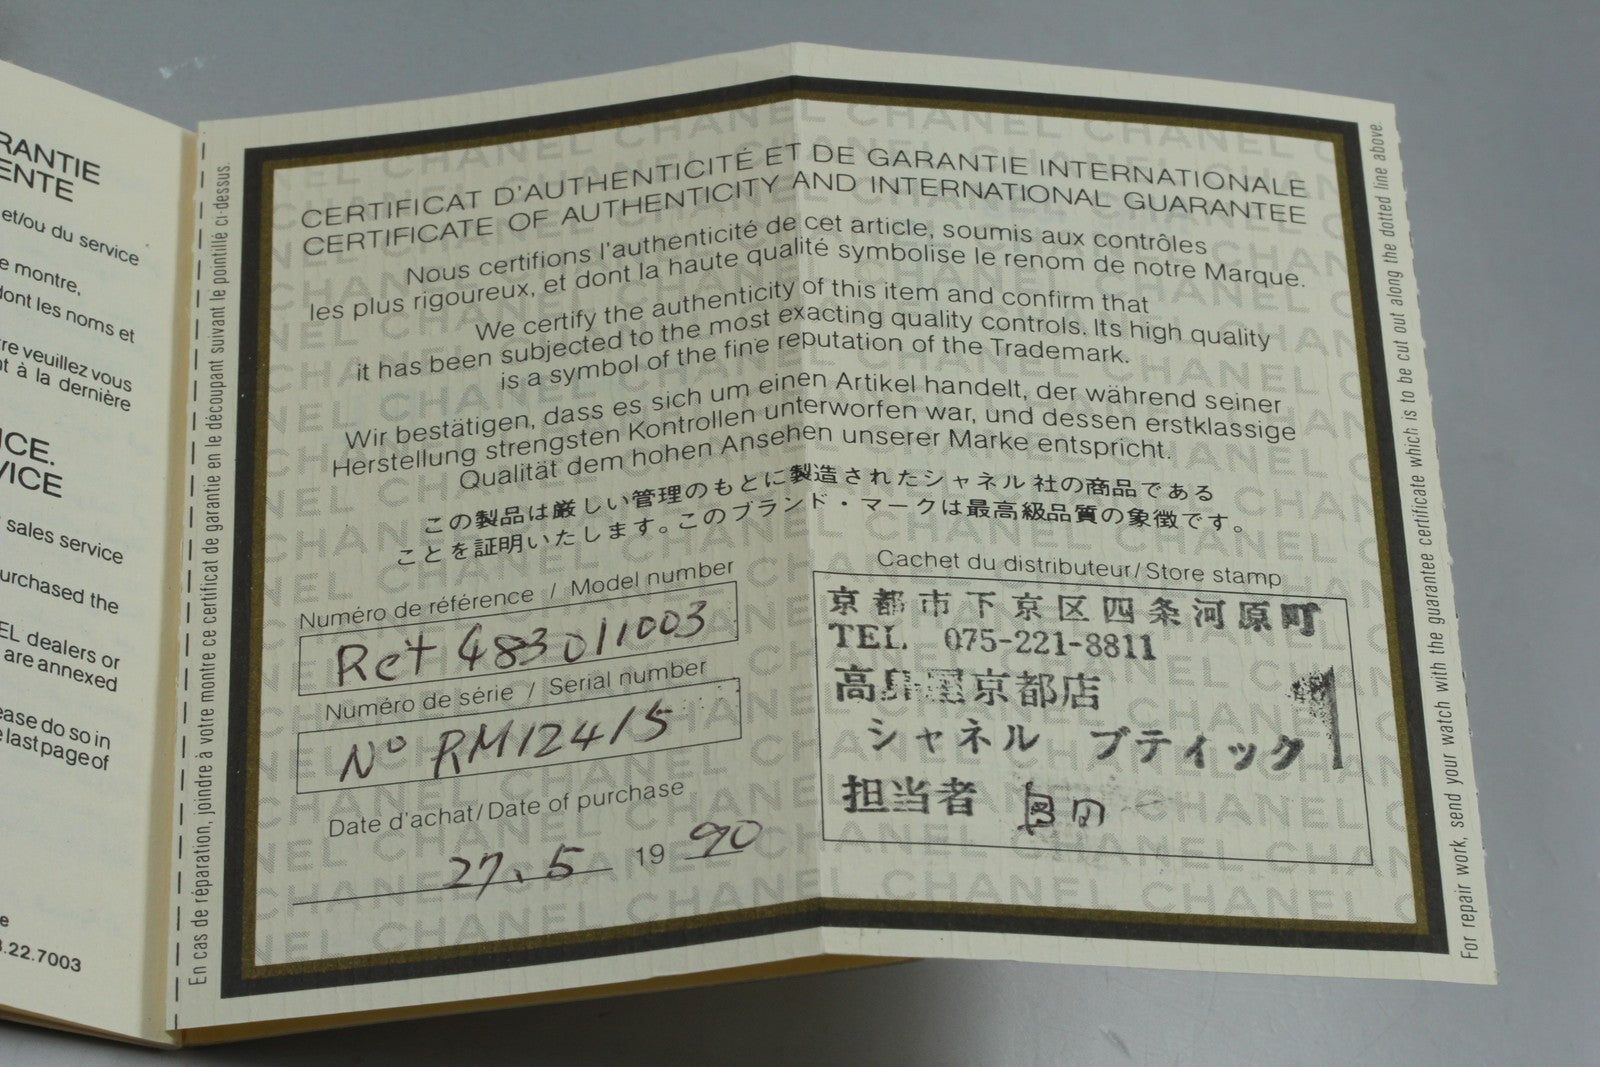 RANTIE
ENTE
et/ou du service
e montre,
dont les noms et
re veuillez vous
t à la dernière
ICE.
VICE
sales service
urchased the
EL dealers or
are annexed
ease do so in
e last page of
e
3.22.7003
En cas de réparation, joindre à votre montre ce certificat de garantie en le découpant suivant le pointillé ci-dessus.
CERTIFICAT D'AUTHENTICITÉ ET DE GARANTIE INTERNATIONALE
CERTIFICATE OF AUTHENTICITY AND INTERNATIONAL GUARANTEE
Nous certifions l'authenticité de cet article, soumis aux contrôles
les plus rigoureux, et dont la haute qualité symbolise le renom de notre Marque.
We certify the authenticity of this item and confirm that
it has been subjected to the most exacting quality controls. Its high quality
is a symbol of the fine reputation of the Trademark.
Wir bestätigen, dass es sich um einen Artikel handelt, der während seiner
Herstellung strengsten Kontrollen unterworfen war, und dessen erstklassige
Qualität dem hohen Ansehen unserer Marke entspricht.
この製品は厳しい管理のもとに製造されたシャネル社の商品である
ことを証明いたします。このブランド・マークは最高級品質の象徴です。
Numéro de référence / Model number
Ref 483011003
Numéro de série / Serial number
No RM12415
Date d'achat/Date of purchase
27. 5 19 90
Cachet du distributeur/Store stamp
京都市下京区四条河原町
TEL. 075-221-8811
高島屋京都店
シャネル ブティック
担当者
For repair work, send your watch with the guarantee certificate which is to be cut out along the dotted line above.